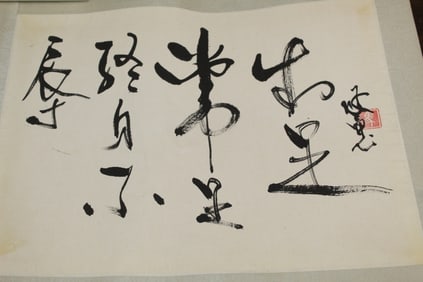 知足
常足
終身不
辱